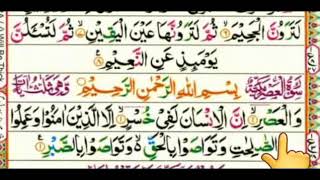 لَتَرَوُنَّ الْجَحِيْمَ ۙ﴿۶﴾ ثُمَّ لَتَرَوُنَّهَا عَيْنَ الْيَقِيْنِ ۙ﴿۷﴾ ثُمَّ لَتُسْـَٔلُنَّ
يَوْمَئِذٍ عَنِ النَّعِيْمِ ﴿۸﴾
بِسْمِ اللّٰهِ الرَّحْمٰنِ الرَّحِيْمِ
وَ الْعَصْرِ ۙ﴿۱﴾ اِنَّ الْاِنْسَانَ لَفِيْ خُسْرٍ ۙ﴿۲﴾ اِلَّا الَّذِيْنَ اٰمَنُوْا وَعَمِلُوا
الصّٰلِحٰتِ وَتَوَاصَوْا بِالْحَقِّ ۙ۬ وَتَوَاصَوْا بِالصَّبْرِ ﴿۳﴾